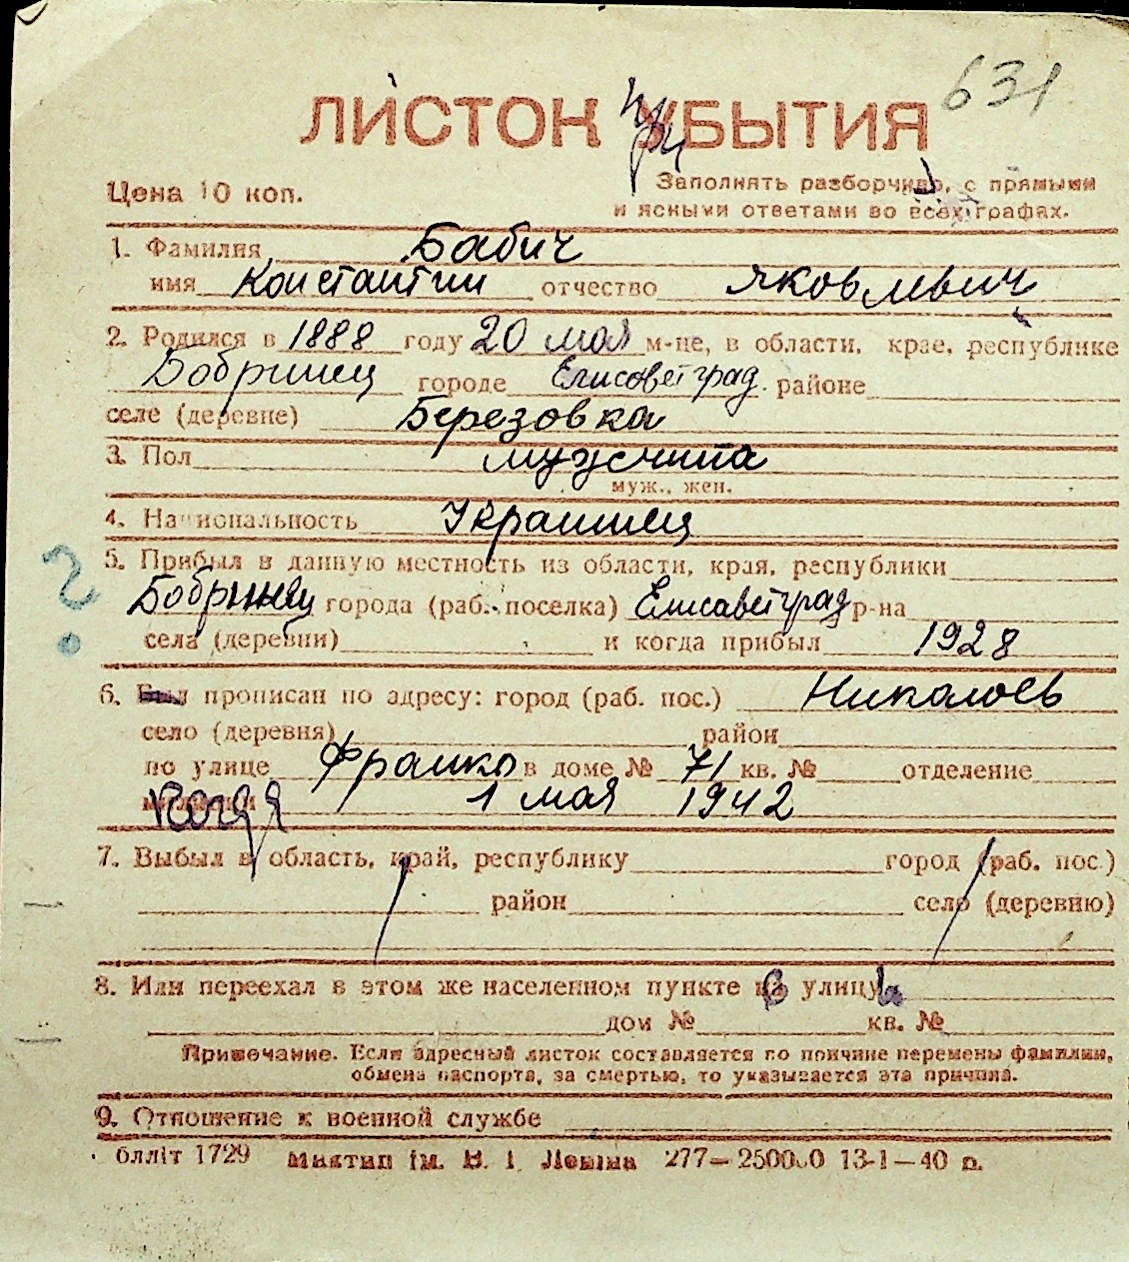 631
ЛИСТОК ПриБЫТИЯ
Цена 10 коп.
Заполнять разборчиво, с прямыми
и ясными ответами во всех графах.
1. Фамилия Бабич
имя Константин отчество Яковлевич
2. Родился в 1888 году 20 мая м-це, в области, крае, республике
Бобринец городе Елисаветград районе
селе (деревне) Березовка
3. Пол мужчина
муж., жен.
4. Национальность Украинец
5. Прибыл в данную местность из области, края, республики
Бобринец города (раб. поселка) Елисаветград р-на
села (деревни) и когда прибыл 1928
?
6. прописан по адресу: город (раб. пос.) Николаев
село (деревня) район
по улице Франко в доме № 71 кв. № отделение
когда 1 мая 1942
7. Выбыл в область, край, республику город (раб. пос.)
район село (деревню)
8. Или переехал в этом же населенном пункте с улицы
дом № кв. №
Примечание. Если адресный листок составляется по причине перемены фамилии,
обмена паспорта, за смертью, то указывается эта причина.
9. Отношение к военной службе
блліт 1729 Миктип ім. В. І. Леніна 277—250000 13-1—40 р.